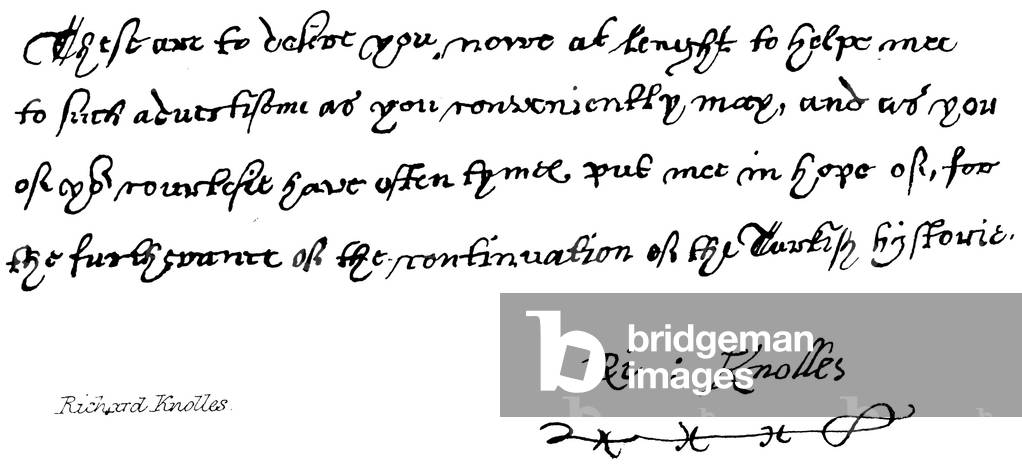 These are to desire you, nowe at lenght to helpe mee
to such advertisem as you conveniently may, and as you
of yor courtesie have often tymes put mee in hope of, for
the furtherance of the continuation of the Turkish hystorie.
bridgeman
images
Ri: Knolles
Richard Knolles.